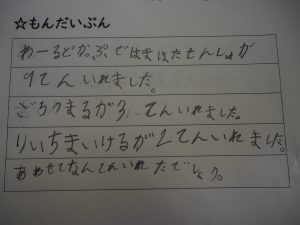 ☆もんだいぶん
わーるどかっぷではまぁたせんしゅが
9てんいれました。
ごろうまるが3てんいれました。
りいちまいけるが2てんいれました。
あわせてなんてんいれたでしょう。